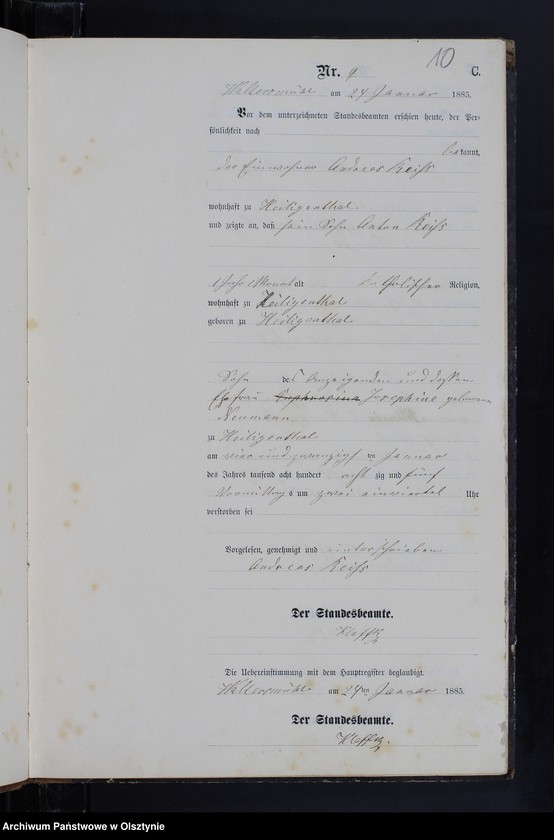 10
Nr. 9 C.
Waltersmühl am 24 Januar 1885.
Vor dem unterzeichneten Standesbeamten erschien heute, der Per-
sönlichkeit nach
bekannt,
der Einwohner Andreas Reiss
wohnhaft zu Heiligenthal
und zeigte an, daß sein Sohn Anton Reiss
Monat alt katholischer Religion,
wohnhaft zu Heiligenthal
geboren zu Heiligenthal
Sohn des Anzeigenden und dessen
Ehefrau Euphrosina Josephine geborene
Neumann
zu Heiligenthal
am vier und zwanzigsten Januar
des Jahres tausend acht hundert acht zig und fünf
Vormittags um zwei einviertel Uhr
verstorben sei
Vorgelesen, genehmigt und unterschrieben
Andreas Reiss
Der Standesbeamte.
Die Uebereinstimmung mit dem Hauptregister beglaubigt.
Waltersmühl am 24ten Januar 1885.
Der Standesbeamte.
Archiwum Państwowe w Olsztynie